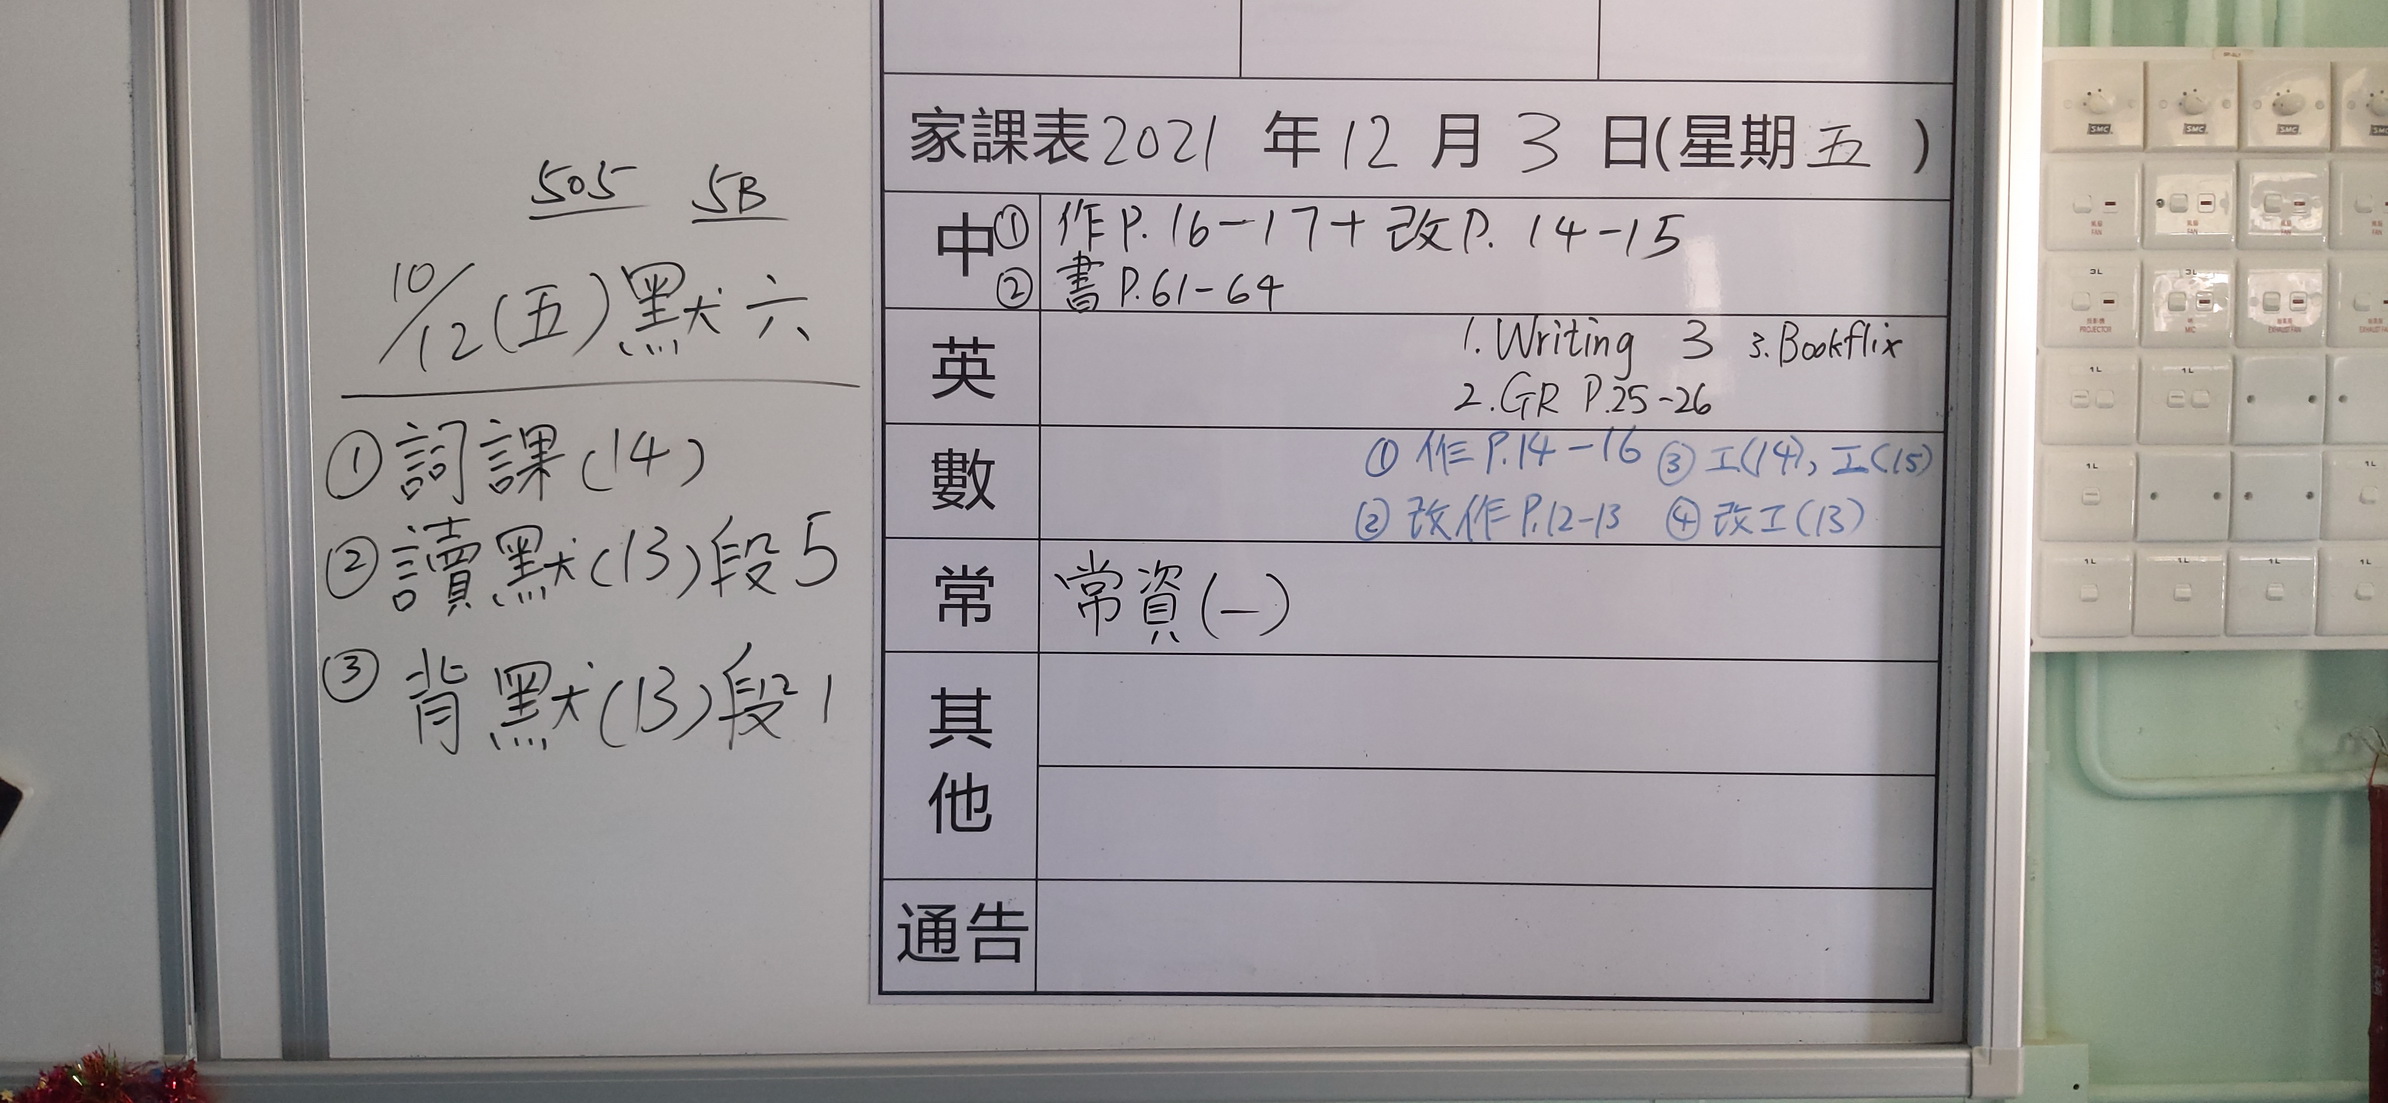 505 5B
10/12(五)默六
①詞課(14)
②讀默(13)段5
③背默(13)段1
家課表2021年12月3日(星期五)
中①作P.16-17+改P.14-15
②書P.61-64
英
1.Writing 3 3.Bookflix
2.GR P.25-26
數
①作P.14-16 ③工(14),工(15)
②改作P.12-13 ④改工(13)
常 常資(一)
其他
通告
SMC SMC SMC SMC
風扇 風扇 風扇
FAN FAN FAN
3L 3L
PROJECTOR MIC EXHAUST FAN
1L 1L
1L 1L
1L 1L 1L 1L